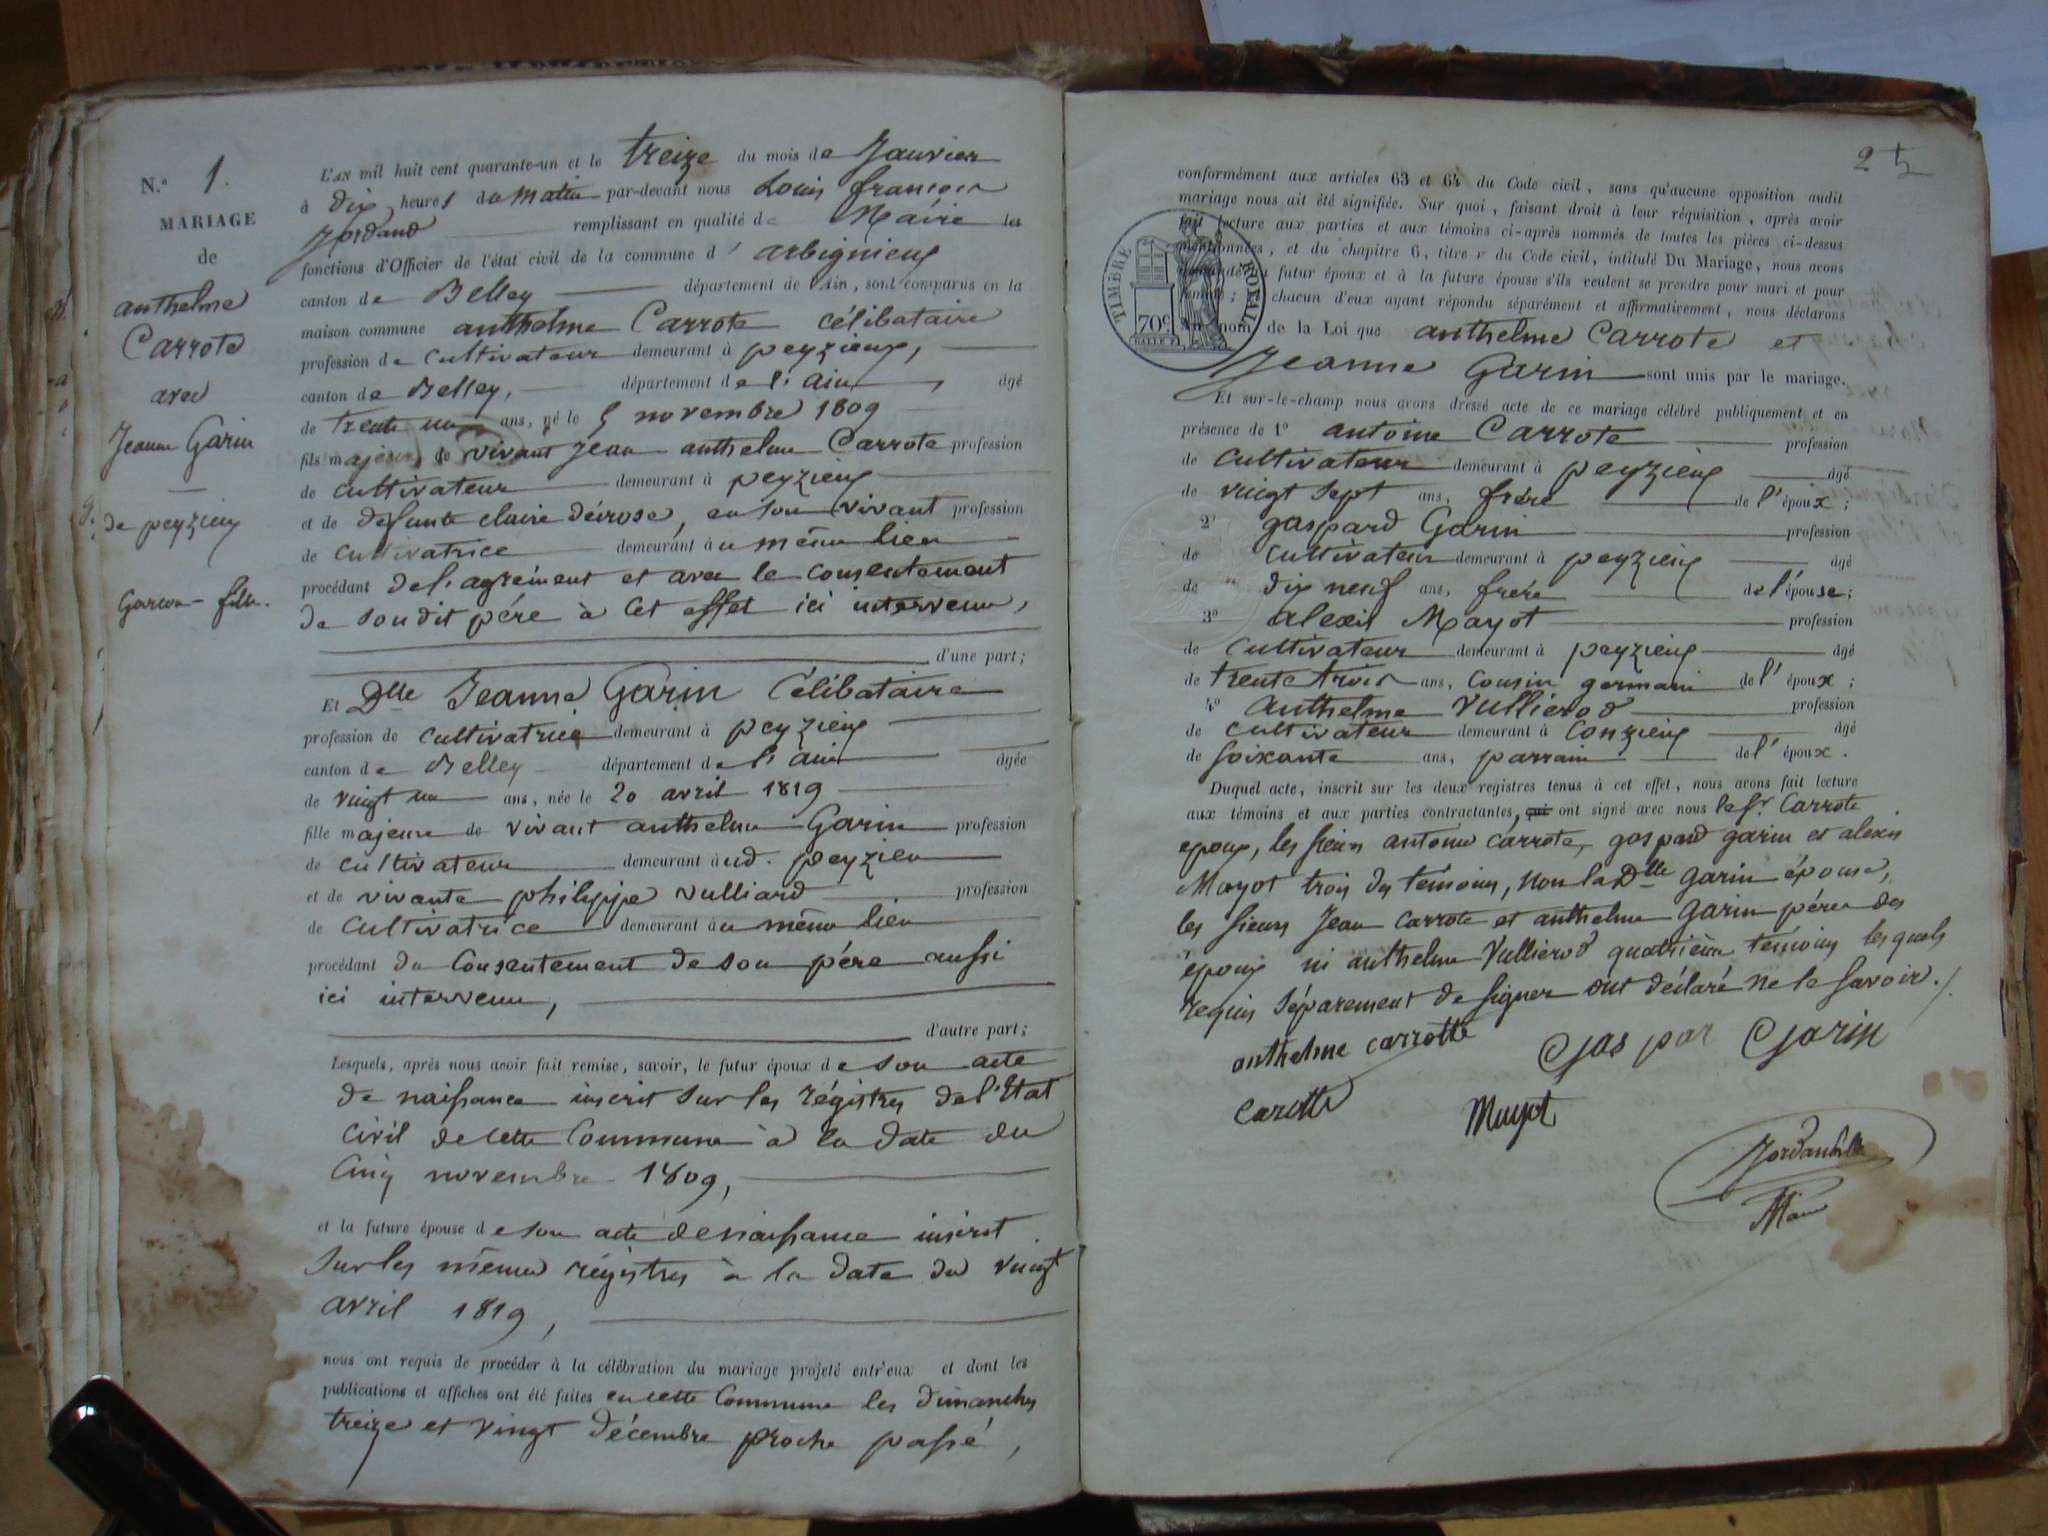 N.° 1.
MARIAGE
de
anthelme
Carrote
avec
Jeanne Garin
de peyzieux
Garcon - fille.
L'AN mil huit cent quarante-un et le treize du mois de Janvier
à dix heures du matin par-devant nous Louis françois
Jordand remplissant en qualité de Maire les
fonctions d'Officier de l'état civil de la commune d' arbignieux
canton de Belley département de l'Ain, sont comparus en la
maison commune anthelme Carrote célibataire
profession de cultivateur demeurant à peyzieux,
canton de Belley, département de l'ain, âgé
de trente un ans, né le 5 novembre 1809
fils majeur de vivant Jean anthelme Carrote profession
de cultivateur demeurant à peyzieux
et de defunte claire dérose, en son vivant profession
de cultivatrice demeurant au même lieu
procédant de l'agrément et avec le consentement
de son dit pére à cet effet ici intervenu,
d'une part;
Et Dlle Jeanne Garin Célibataire
profession de cultivatrice demeurant à peyzieux
canton de Belley département de l'ain âgée
de vingt un ans, née le 20 avril 1819
fille majeure de vivant anthelme Garin profession
de cultivateur demeurant aud. peyzieu
et de vivante philippe vulliard profession
de cultivatrice demeurant au même lieu
procédant du consentement de son pére aussi
ici intervenu,
d'autre part;
Lesquels, après nous avoir fait remise, savoir, le futur époux de son acte
de naissance inscrit sur les régistres de l'Etat
civil de cette Commune à la date du
cinq novembre 1809,
et la future épouse de son acte de naissance inscrit
sur les mêmes régistres à la date du vingt
avril 1819,
nous ont requis de procéder à la célébration du mariage projeté entr'eux et dont les
publications et affiches ont été faites en cette Commune les dimanches
treize et vingt décembre proche passé,
2
conformément aux articles 63 et 64 du Code civil, sans qu'aucune opposition audit
mariage nous ait été signifiée. Sur quoi, faisant droit à leur réquisition, après avoir
fait lecture aux parties et aux témoins ci-après nommés de toutes les pièces ci-dessus
mentionnées, et du chapitre 6, titre v du Code civil, intitulé Du Mariage, nous avons
demandé au futur époux et à la future épouse s'ils veulent se prendre pour mari et pour
femme; chacun d'eux ayant répondu séparément et affirmativement, nous déclarons
au nom de la Loi que anthelme Carrote et
Jeanne Garin sont unis par le mariage.
TIMBRE ROYAL
70c
Et sur-le-champ nous avons dressé acte de ce mariage célébré publiquement et en
présence de 1° antoine Carrote profession
de cultivateur demeurant à peyzieux âgé
de vingt sept ans, frére de l'époux;
2° gaspard Garin profession
de cultivateur demeurant à peyzieux âgé
de dix neuf ans, frére de l'épouse;
3° alexis Mayot profession
de cultivateur demeurant à peyzieux âgé
de trente trois ans, cousin germain de l'époux;
4° anthelme Vullierod profession
de cultivateur demeurant à Conzieux âgé
de soixante ans, parrain de l'époux.
Duquel acte, inscrit sur les deux registres tenus à cet effet, nous avons fait lecture
aux témoins et aux parties contractantes, qui ont signé avec nous le sr Carrote
epoux, les sieurs antoine carrote, gaspard garin et alexis
Mayot trois des témoins, non la Dlle Garin épouse,
les sieurs Jean Carrote et anthelme Garin péres des
époux ni anthelme Vullierod quatrième témoins lesquels
requis séparement de signer ont déclaré ne le savoir./.
anthelme carrotte Gas par Garin
carotte Mayot
Maire